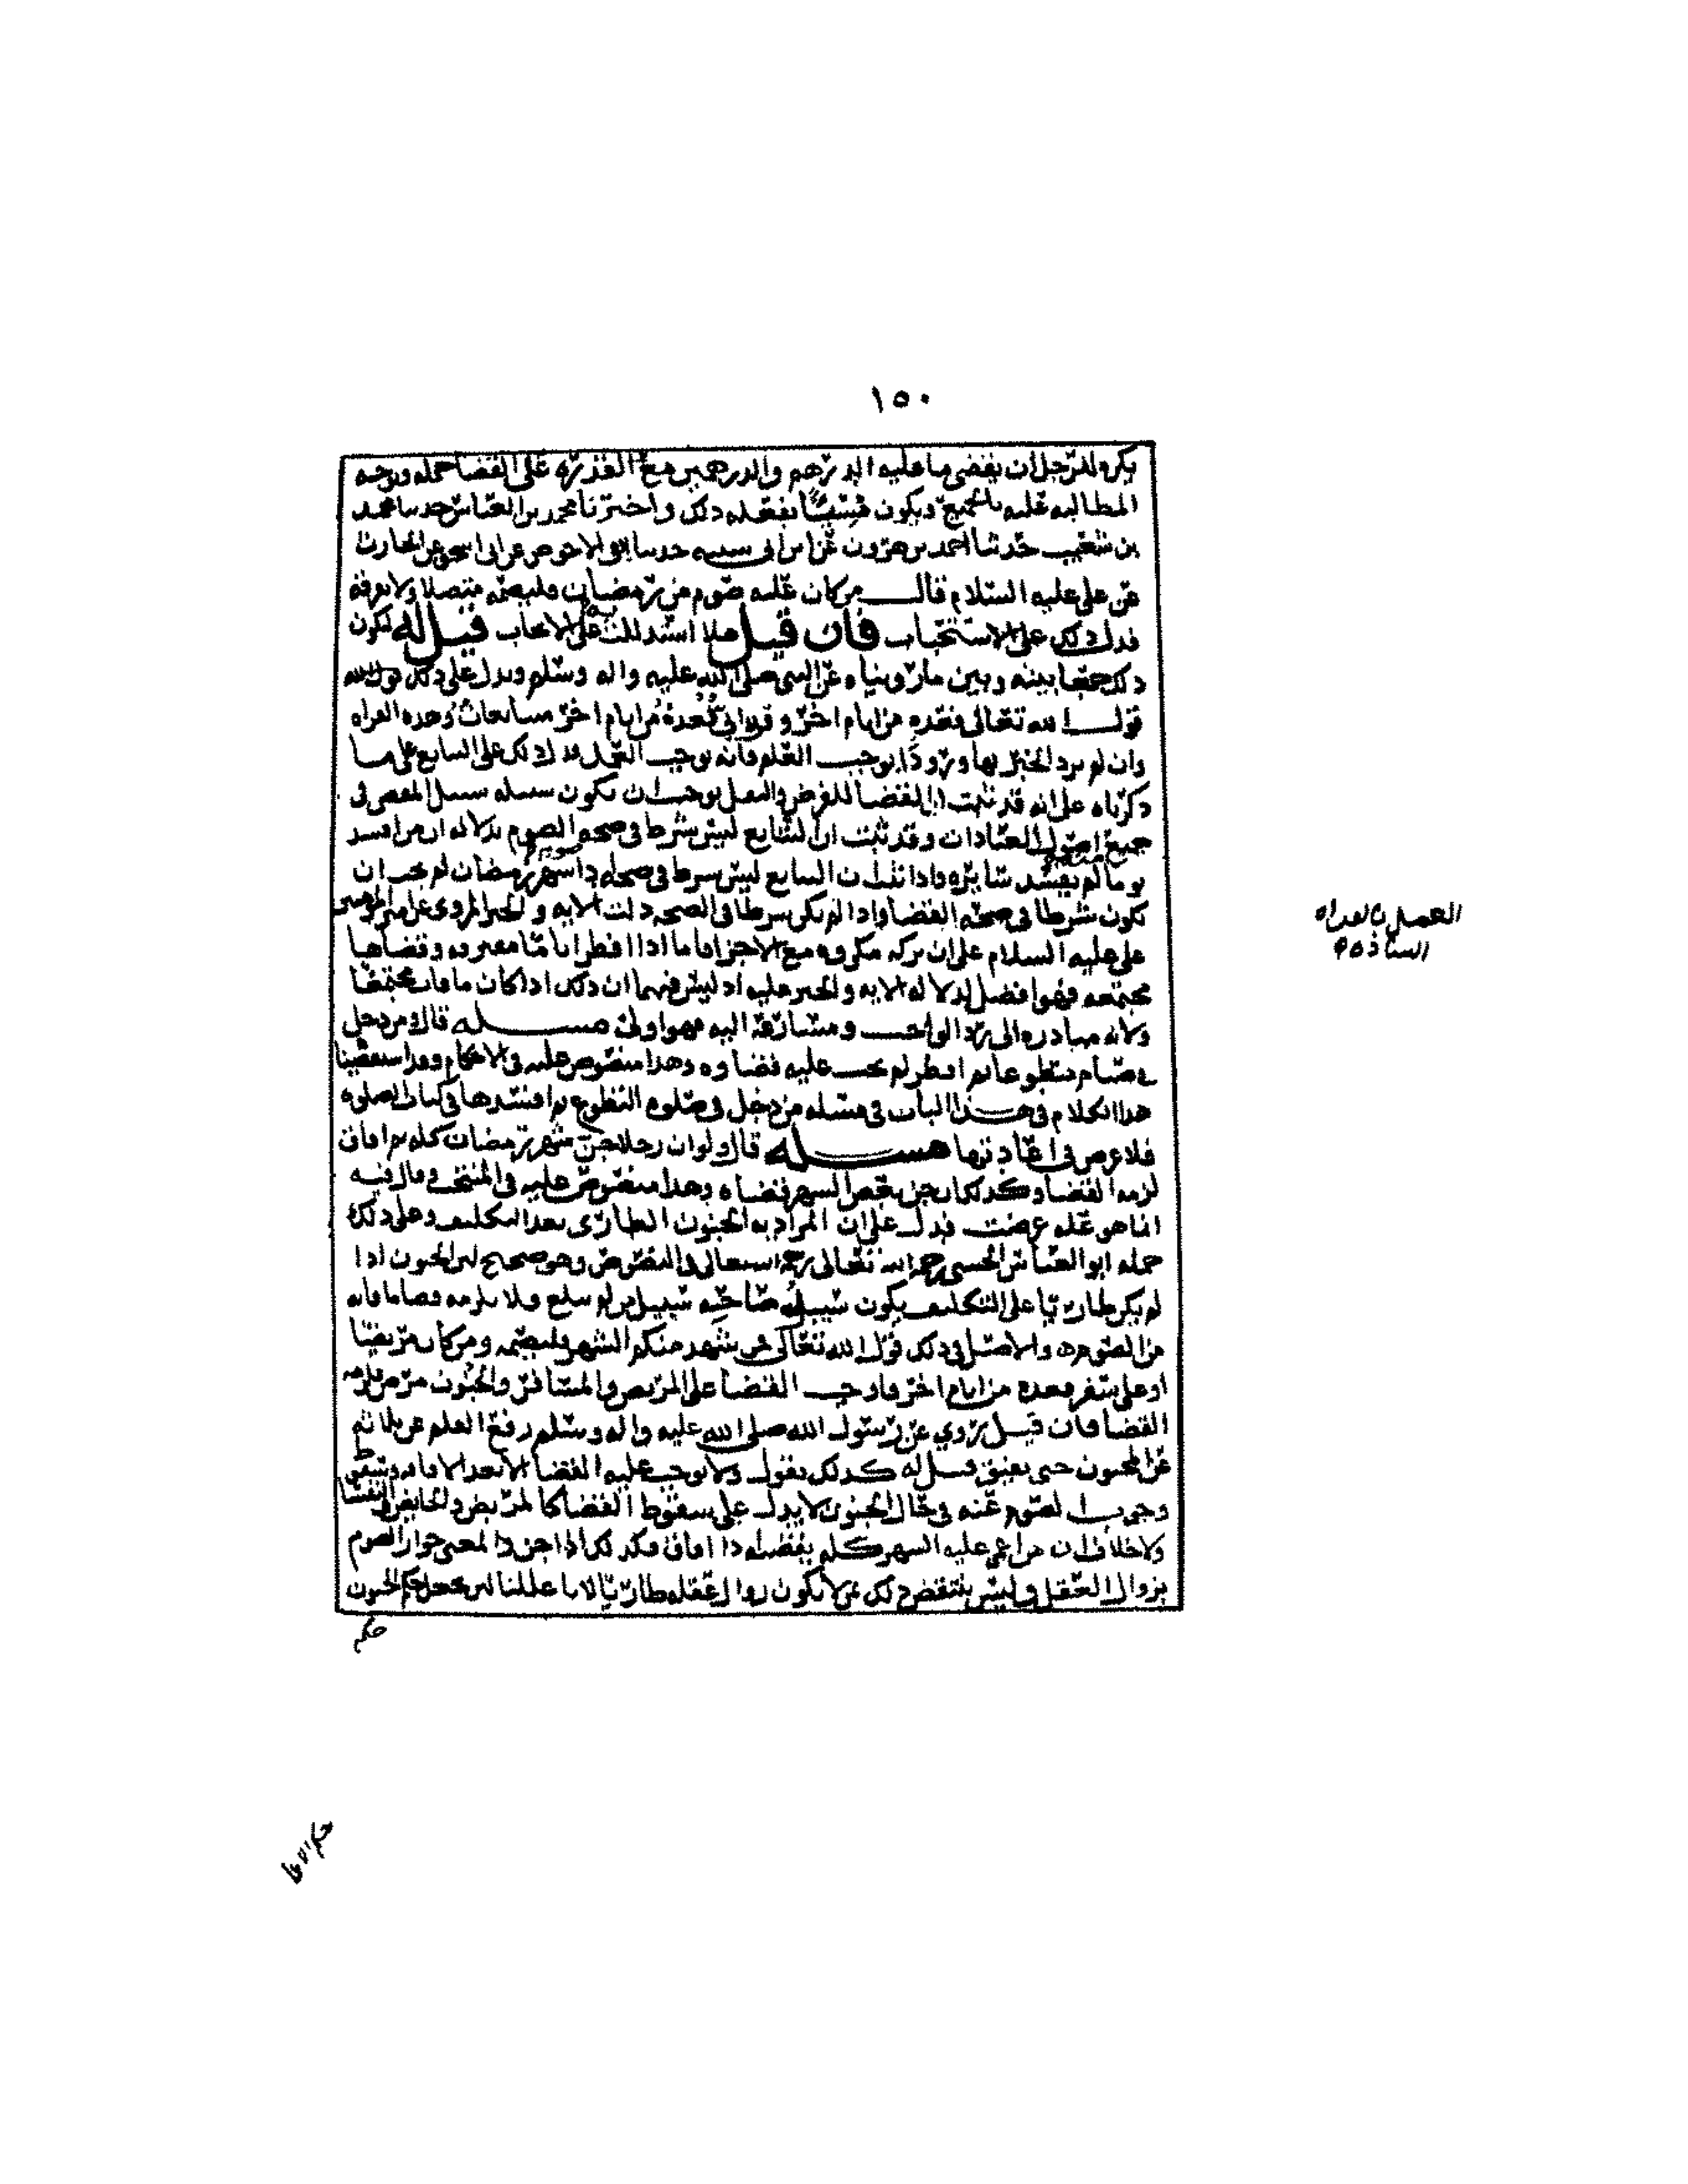 ١٥٠
يكره للرجل ان يقضي ما عليه الدرهم والدرهمين مع القدرة على القضا جملة وتوجه
المطالبه عليه بالجميع ويكون مسيئا بفعله ذلك واخبرنا محمد بن العباس حدثنا محمد
بن شعيب حدثنا احمد بن هرون عن ابن ابي سيبه حدثنا ابو الاحوص عن ابي اسحق عن الحارث
عن علي عليه السلام قال من كان عليه صوم من رمضان فليصمه متصلا ولا يفرقه
فدل ذلك على الاستحباب فان قيل هلا استدللت به على الايجاب قيل له ليكون
ذلك جمعا بينه وبين ما رويناه عن النبي صلى الله عليه واله وسلم ويدل على ذلك
قول الله تعالى فعدة من ايام اخر وقراة ابي فعدة من ايام اخر متتابعات وهذه القراه
وان لم يرد الخبر بها ورودا يوجب العلم فانه يوجب العمل فدل ذلك على التتابع على ما
ذكرناه على انه قد ثبت ان القضا للفرض والنفل يوجب ان تكون سبيله سبيل المقضي في
جميع اصول العبادات وقد ثبت ان التتابع ليس بشرط في صحة الصوم بدلالة ان من افسد
يوما لم يفسد سائره واذا ثبت ان التتابع ليس بشرط في صحة صوم شهر رمضان لم يجب ان
تكون شرطا في صحة القضا واذا لم يكن شرطا في الصحة دلت الايه والخبر المروي عن امير المومنين
علي عليه السلام على ان تركه مكروه مع الاجزا فاما اذا افطر اياما متفرقه وقضاها
مجتمعه فهو افضل لدلالة الايه والخبر عليه اذ ليس فيهما ان ذلك اذا كان ما فات مجتمعا
ولانه مبادره الى رد الواجب ومسارعة اليه فهو اولى مسله قال ومن دخل
في صيام متطوعا ثم افطر لم يجب عليه قضاوه وهذا منصوص عليه في الاحكام وقد استقصينا
هذا الكلام في هذا الباب في مسله من دخل في صلوه التطوع ثم افسدها في كتاب الصلوه
فلا غرض في اعادتها مسله قال ولو ان رجلا جن شهر رمضان كله ثم افاق
لزمه القضا وكذلك ان جن بعض الشهر قضاه وهذا منصوص عليه في المنتخب وقال فيه
انما هو علة عرضت فدل على ان المراد به الجنون الطاري بعد التكليف وعلى ذلك
حمله ابو العباس الحسني رحمه الله تعالى في النصوص وهو صحيح لان الجنون اذا
لم يكن طاريا على التكليف يكون سبيل صاحبه سبيل من لم يبلغ فلا يلزمه قضا ما فاته
من الصوم والاصل في ذلك قول الله تعالى فمن شهد منكم الشهر فليصمه ومن كان مريضا
او على سفر فعدة من ايام اخر فاوجب القضا على المريض والمسافر والجنون مرض فلزمه
القضا فان قيل روي عن رسول الله صلى الله عليه واله وسلم رفع القلم عن ثلاثه
عن المجنون حتى يفيق قيل له كذلك نقول ولا نوجب عليه القضا الا بعد الافاقه وسقوط
وجوب الصوم عنه في حال الجنون لا يدل على سقوط القضا كالمريض والحايض والنفسا
ولا خلاف ان من اغمي عليه الشهر كله يقضيه اذا افاق فكذلك اذا جن والمعنى جواز الصوم
بزوال العقل وليس ينتقض ذلك بمن لا يكون زوال عقله طاريا لانا عللنا لان نجعل حكم الجنون
حكم
العمل بالقراه
الشاذه
حكم الاغما